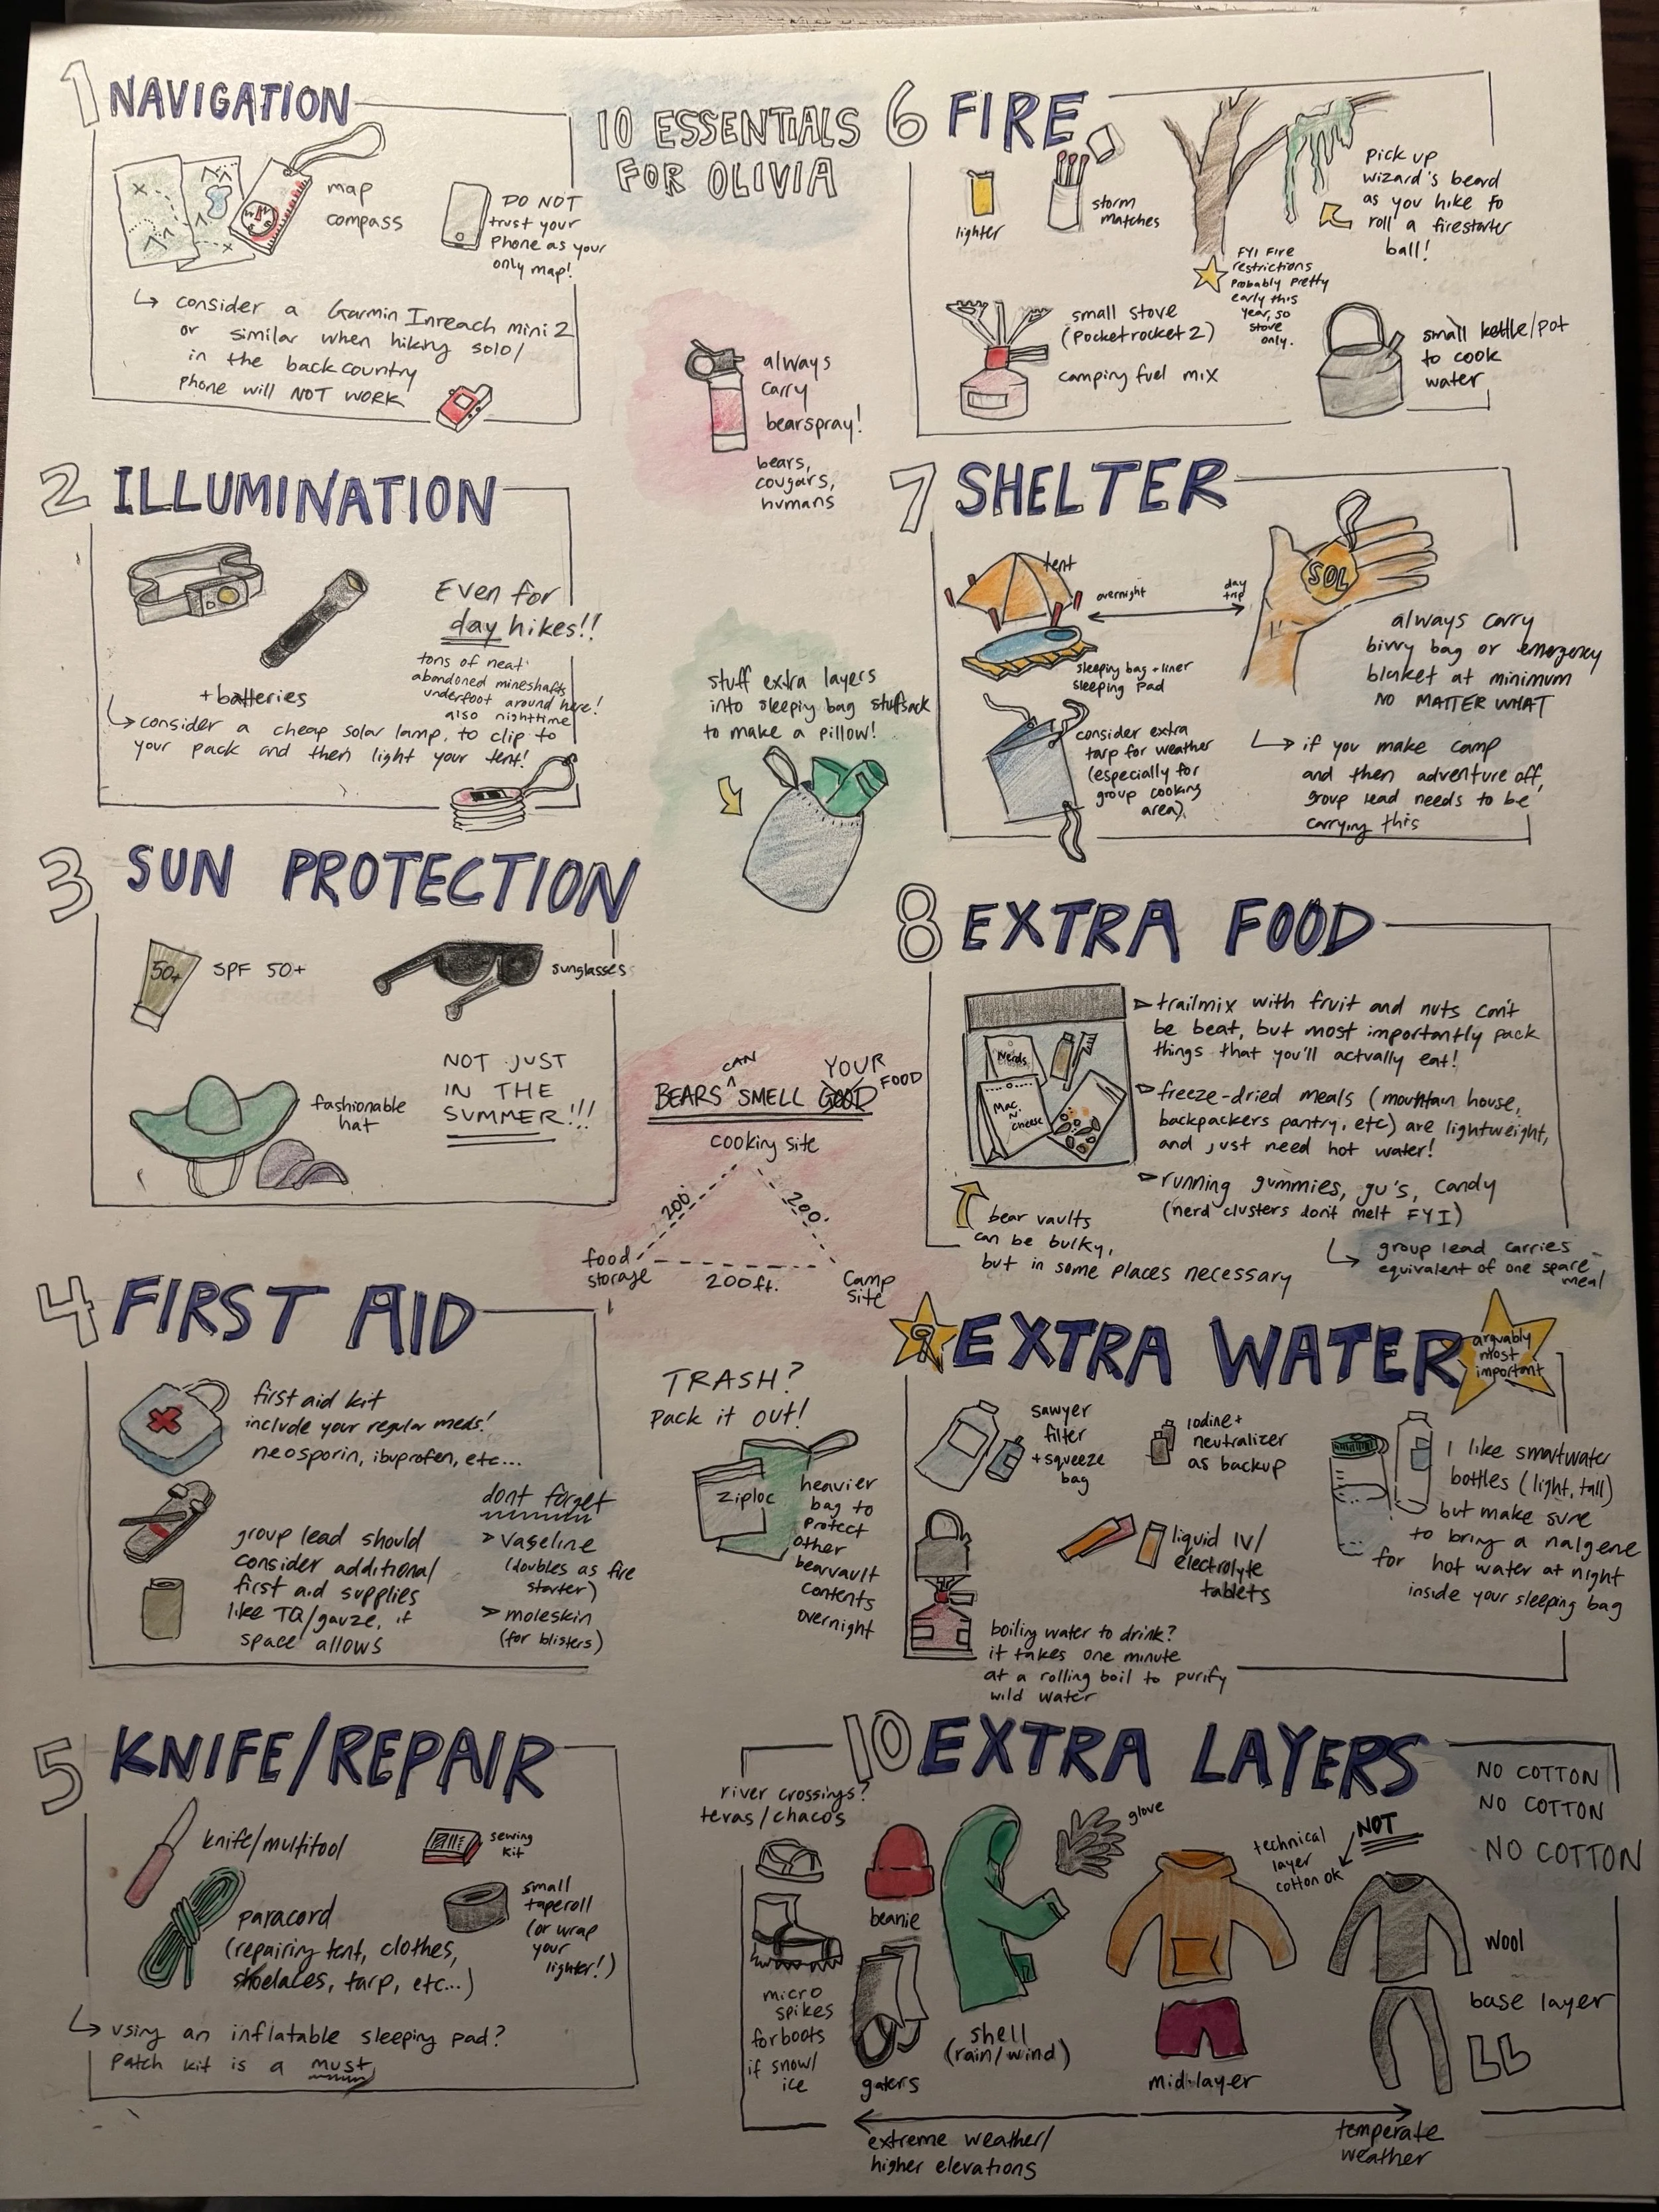 10 ESSENTIALS
FOR OLIVIA
1 NAVIGATION
map
compass
DO NOT
trust your
phone as your
only map!
↳ consider a Garmin Inreach mini 2
or similar when hiking solo/
in the backcountry
phone will NOT WORK
2 ILLUMINATION
Even for
day hikes!!
tons of neat
abandoned mineshafts
underfoot around here!
also nighttime
+ batteries
↳ consider a cheap solar lamp, to clip to
your pack and then light your tent!
3 SUN PROTECTION
50+
SPF 50+
sunglasses
fashionable
hat
NOT JUST
IN THE
SUMMER!!!
4 FIRST AID
first aid kit
include your regular meds!
neosporin, ibuprofen, etc...
group lead should
consider additional
first aid supplies
like TQ/gauze, if
space allows
dont forget
> vaseline
(doubles as fire
starter)
> moleskin
(for blisters)
5 KNIFE/REPAIR
knife/multitool
sewing
kit
paracord
(repairing tent, clothes,
shoelaces, tarp, etc...)
small
taperoll
(or wrap
your
lighter!)
↳ using an inflatable sleeping pad?
Patch kit is a must
always
carry
bearspray!
bears,
cougars,
humans
stuff extra layers
into sleeping bag stuffsack
to make a pillow!
BEARS CAN SMELL GOOD YOUR FOOD
cooking site
200'
200'
food
storage
200ft.
Camp
site
TRASH?
pack it out!
ziploc
heavier
bag to
protect
other
bearvault
contents
overnight
6 FIRE
lighter
storm
matches
pick up
wizard's beard
as you hike to
roll a firestarter
ball!
FYI Fire
restrictions
probably pretty
early this
year, so
stove
only.
small stove
(Pocketrocket 2)
camping fuel mix
small kettle/pot
to cook
water
7 SHELTER
tent
overnight
day
trip
SOL
sleeping bag + liner
sleeping pad
always carry
bivvy bag or emergency
blanket at minimum
NO MATTER WHAT
consider extra
tarp for weather
(especially for
group cooking
area).
↳ if you make camp
and then adventure off,
group lead needs to be
carrying this
8 EXTRA FOOD
Nerds
Mac
N'
cheese
▹ trailmix with fruit and nuts can't
be beat, but most importantly pack
things that you'll actually eat!
▹ freeze-dried meals (mountain house,
backpackers pantry, etc) are lightweight,
and just need hot water!
▹ running gummies, gu's, candy
(nerd clusters don't melt FYI)
bear vaults
can be bulky,
but in some places necessary
↳ group lead carries
equivalent of one spare
meal
9 EXTRA WATER
arguably
most
important
sawyer
filter
+ squeeze
bag
iodine +
neutralizer
as backup
I like smartwater
bottles (light, tall)
but make sure
to bring a nalgene
for hot water at night
inside your sleeping bag
liquid IV/
electrolyte
tablets
boiling water to drink?
it takes one minute
at a rolling boil to purify
wild water
10 EXTRA LAYERS
NO COTTON
NO COTTON
NO COTTON
river crossings?
tevas/chacos
beanie
glove
technical
layer
cotton ok
NOT
wool
base layer
micro
spikes
for boots
if snow/
ice
gaters
shell
(rain/wind)
mid-layer
extreme weather/
higher elevations
temperate
weather